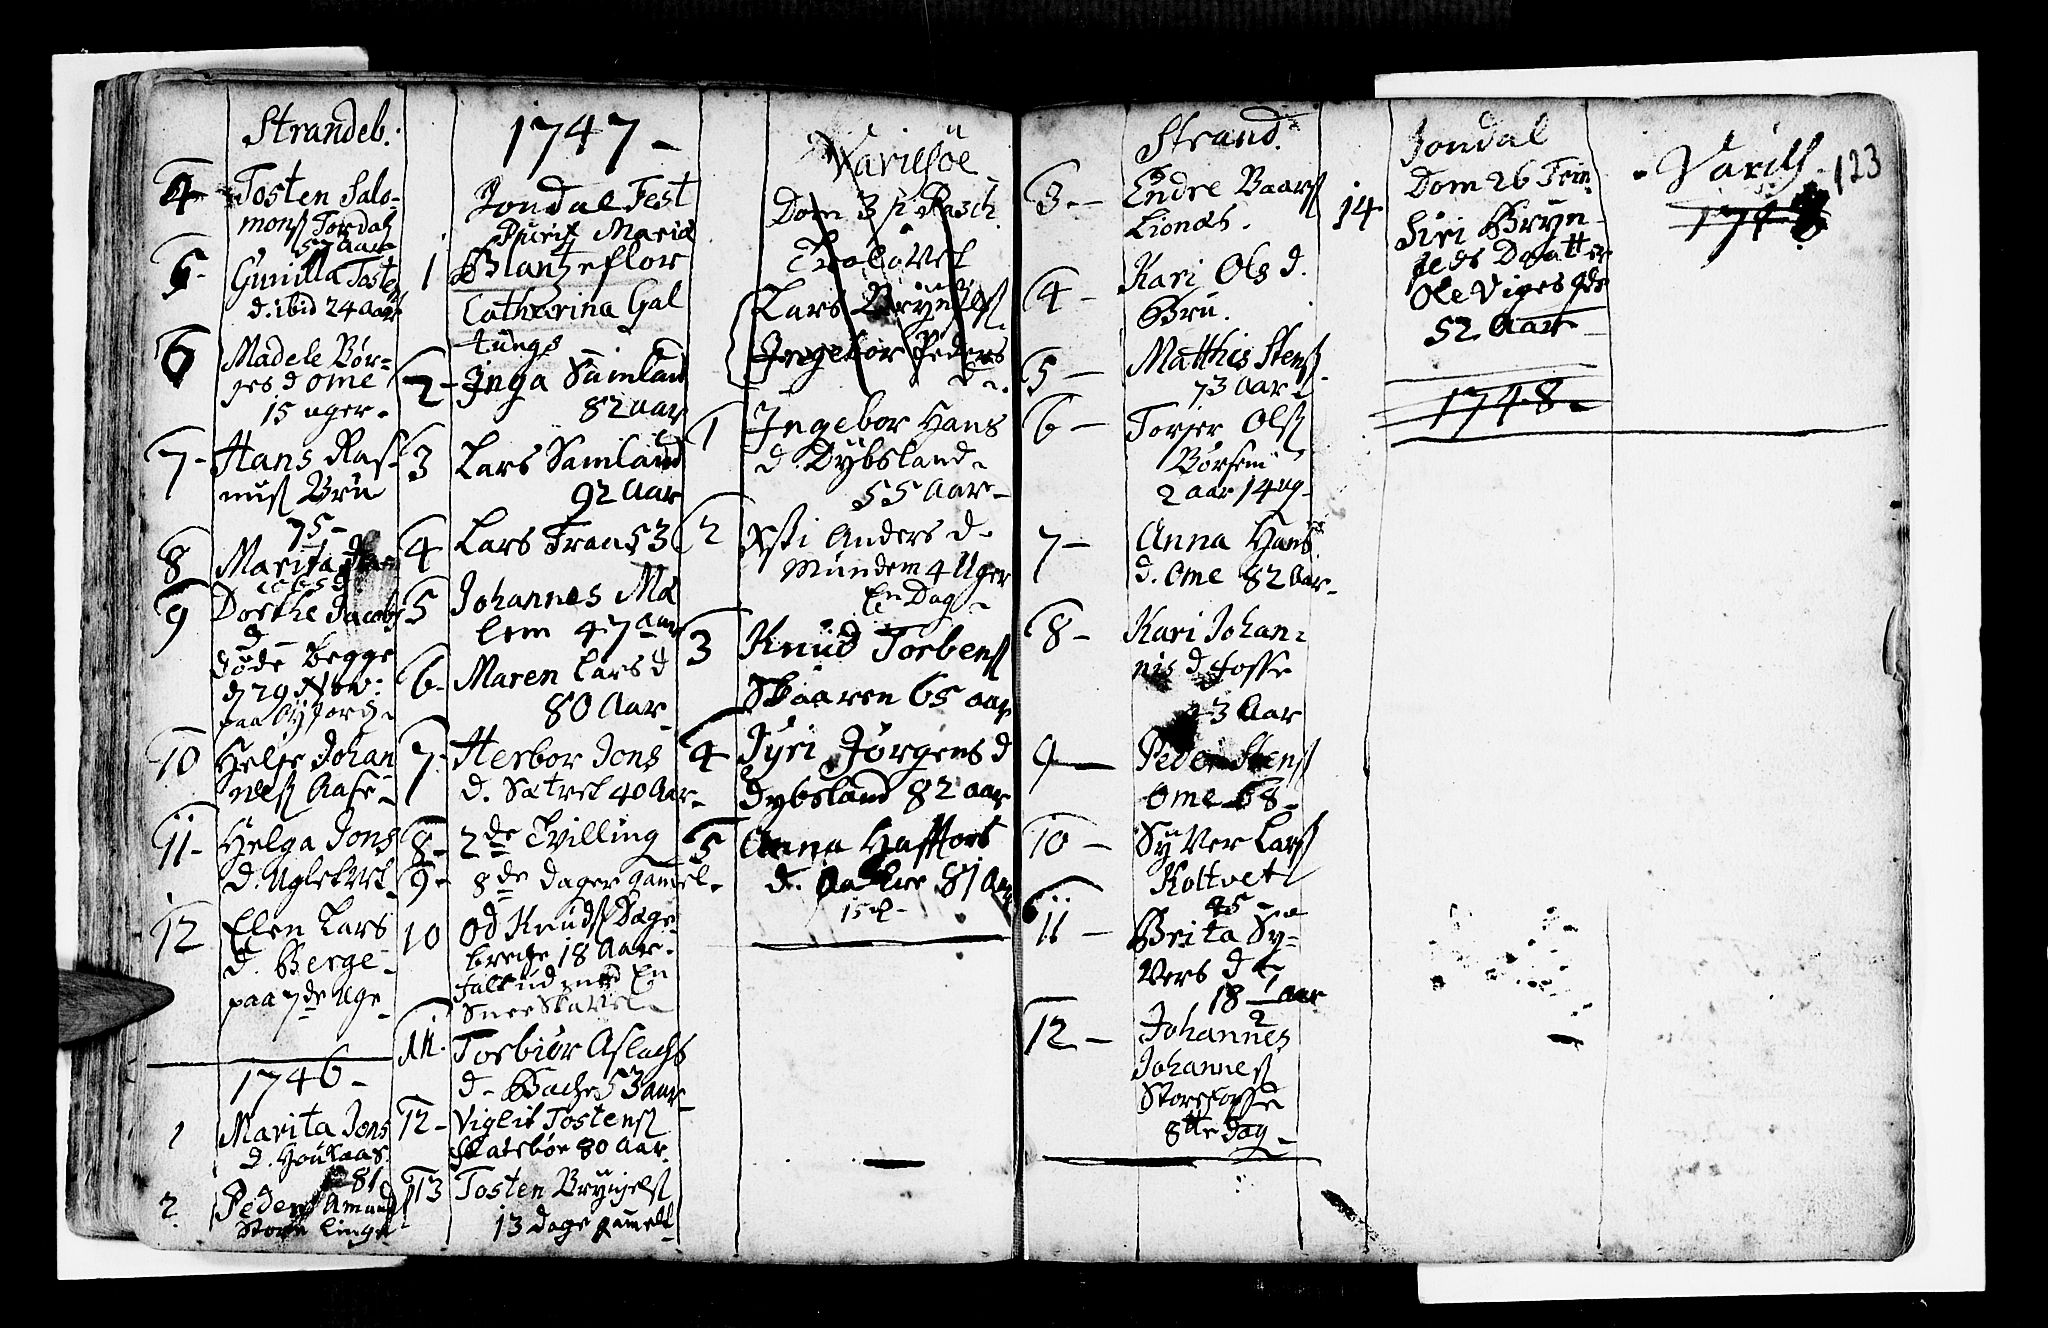 Strandeb.
4 Tosten Salo-
mons Tordal
57 Aar
5- Gunilla Tostens
d. ibid 24 Aar
6 Madele Bør-
ges d Ome
15 uger.
7- Hans Ras-
mus Bru
75-
8 Marita
Jacobs d
9 Dorthe Jacobs
d
døde begge
d 29 Nov:
paa
10 Helje Johan
nes Aase
11- Helga Jons
d.
12 Elen Lars
d. Berge-
paa 7de Uge
1746-
1 Marita Jons
d. Houkaas
81
2. Peder Amunds
Store Linge
1747-
Jondal Fest
Purif Mariæ
1 Blantzeflor
Catharina Gal
tungs
2- Inga Samland
82 aar
3 Lars Samland
92 Aar
4 Lars Traa 53
5 Johannes Mæ
lem 47 aar
6- Maren Lars d
80 Aar
7- Herbor Jons
d. Sætvet 40 Aar
8- 2de Tvilling
9- 8de dager gamel-
10 Od Knuds
18 Aar.
falt ud med En
Snee
11. Torbiør Aslachs
d- Bache 53 aar
12- Viglik Tostens
80 Aar
13 Tosten Brynjels
13 dage gamel
Varilsøe
Dom 3 p Pasch
Trolovet
Lars Brynjels
Ingebor Peders
d.
1 Ingebor Hans
d. Dybsland-
55 Aar-
2 Anders d-
Mundem 4 Uger
En Dag-
3 Knud Torbens
Skaaren 65 aar
4 Jyri Jørgens d
Dybsland 82 aar
5 Anna
d. 81 Aar
Strand.
3.- Endre Baars
Lionæs.
4- Kari Ols d.
Bru.
5- Matthis Stens
73 Aar
6- Torjer Ols
Børsem
2 aar 14 ug-
7- Anna Hans
d. Ome 82 Aar-
8- Kari Johan-
nis d Fosse
3 Aar
9 Peder Stens
Ome 68-
10- Syver Lars
Koltvet
45-
11- Brita Sy-
vers d
18 1/2 aar
12- Johannes
Johannes
8tte Dag-
Jondal
Dom 26 Trin.
14 Siri Bryn-
jelds Daatter
Ole Viges gde
52 Aar
1748-
Varils. 123